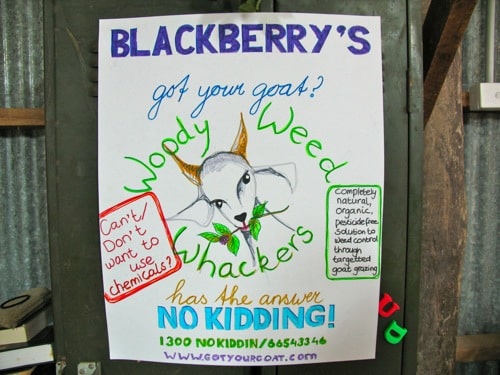 BLACKBERRY'S
got your goat?
Woody Weed
Whackers
Can't/
Don't
want to
use
chemicals?
Completely
natural,
organic,
pesticide free
solution to
weed control
through
targetted
goat grazing
has the answer
NO KIDDING!
1300 NOKIDDIN/66543346
WWW.GOTYOURGOAT.COM
UD